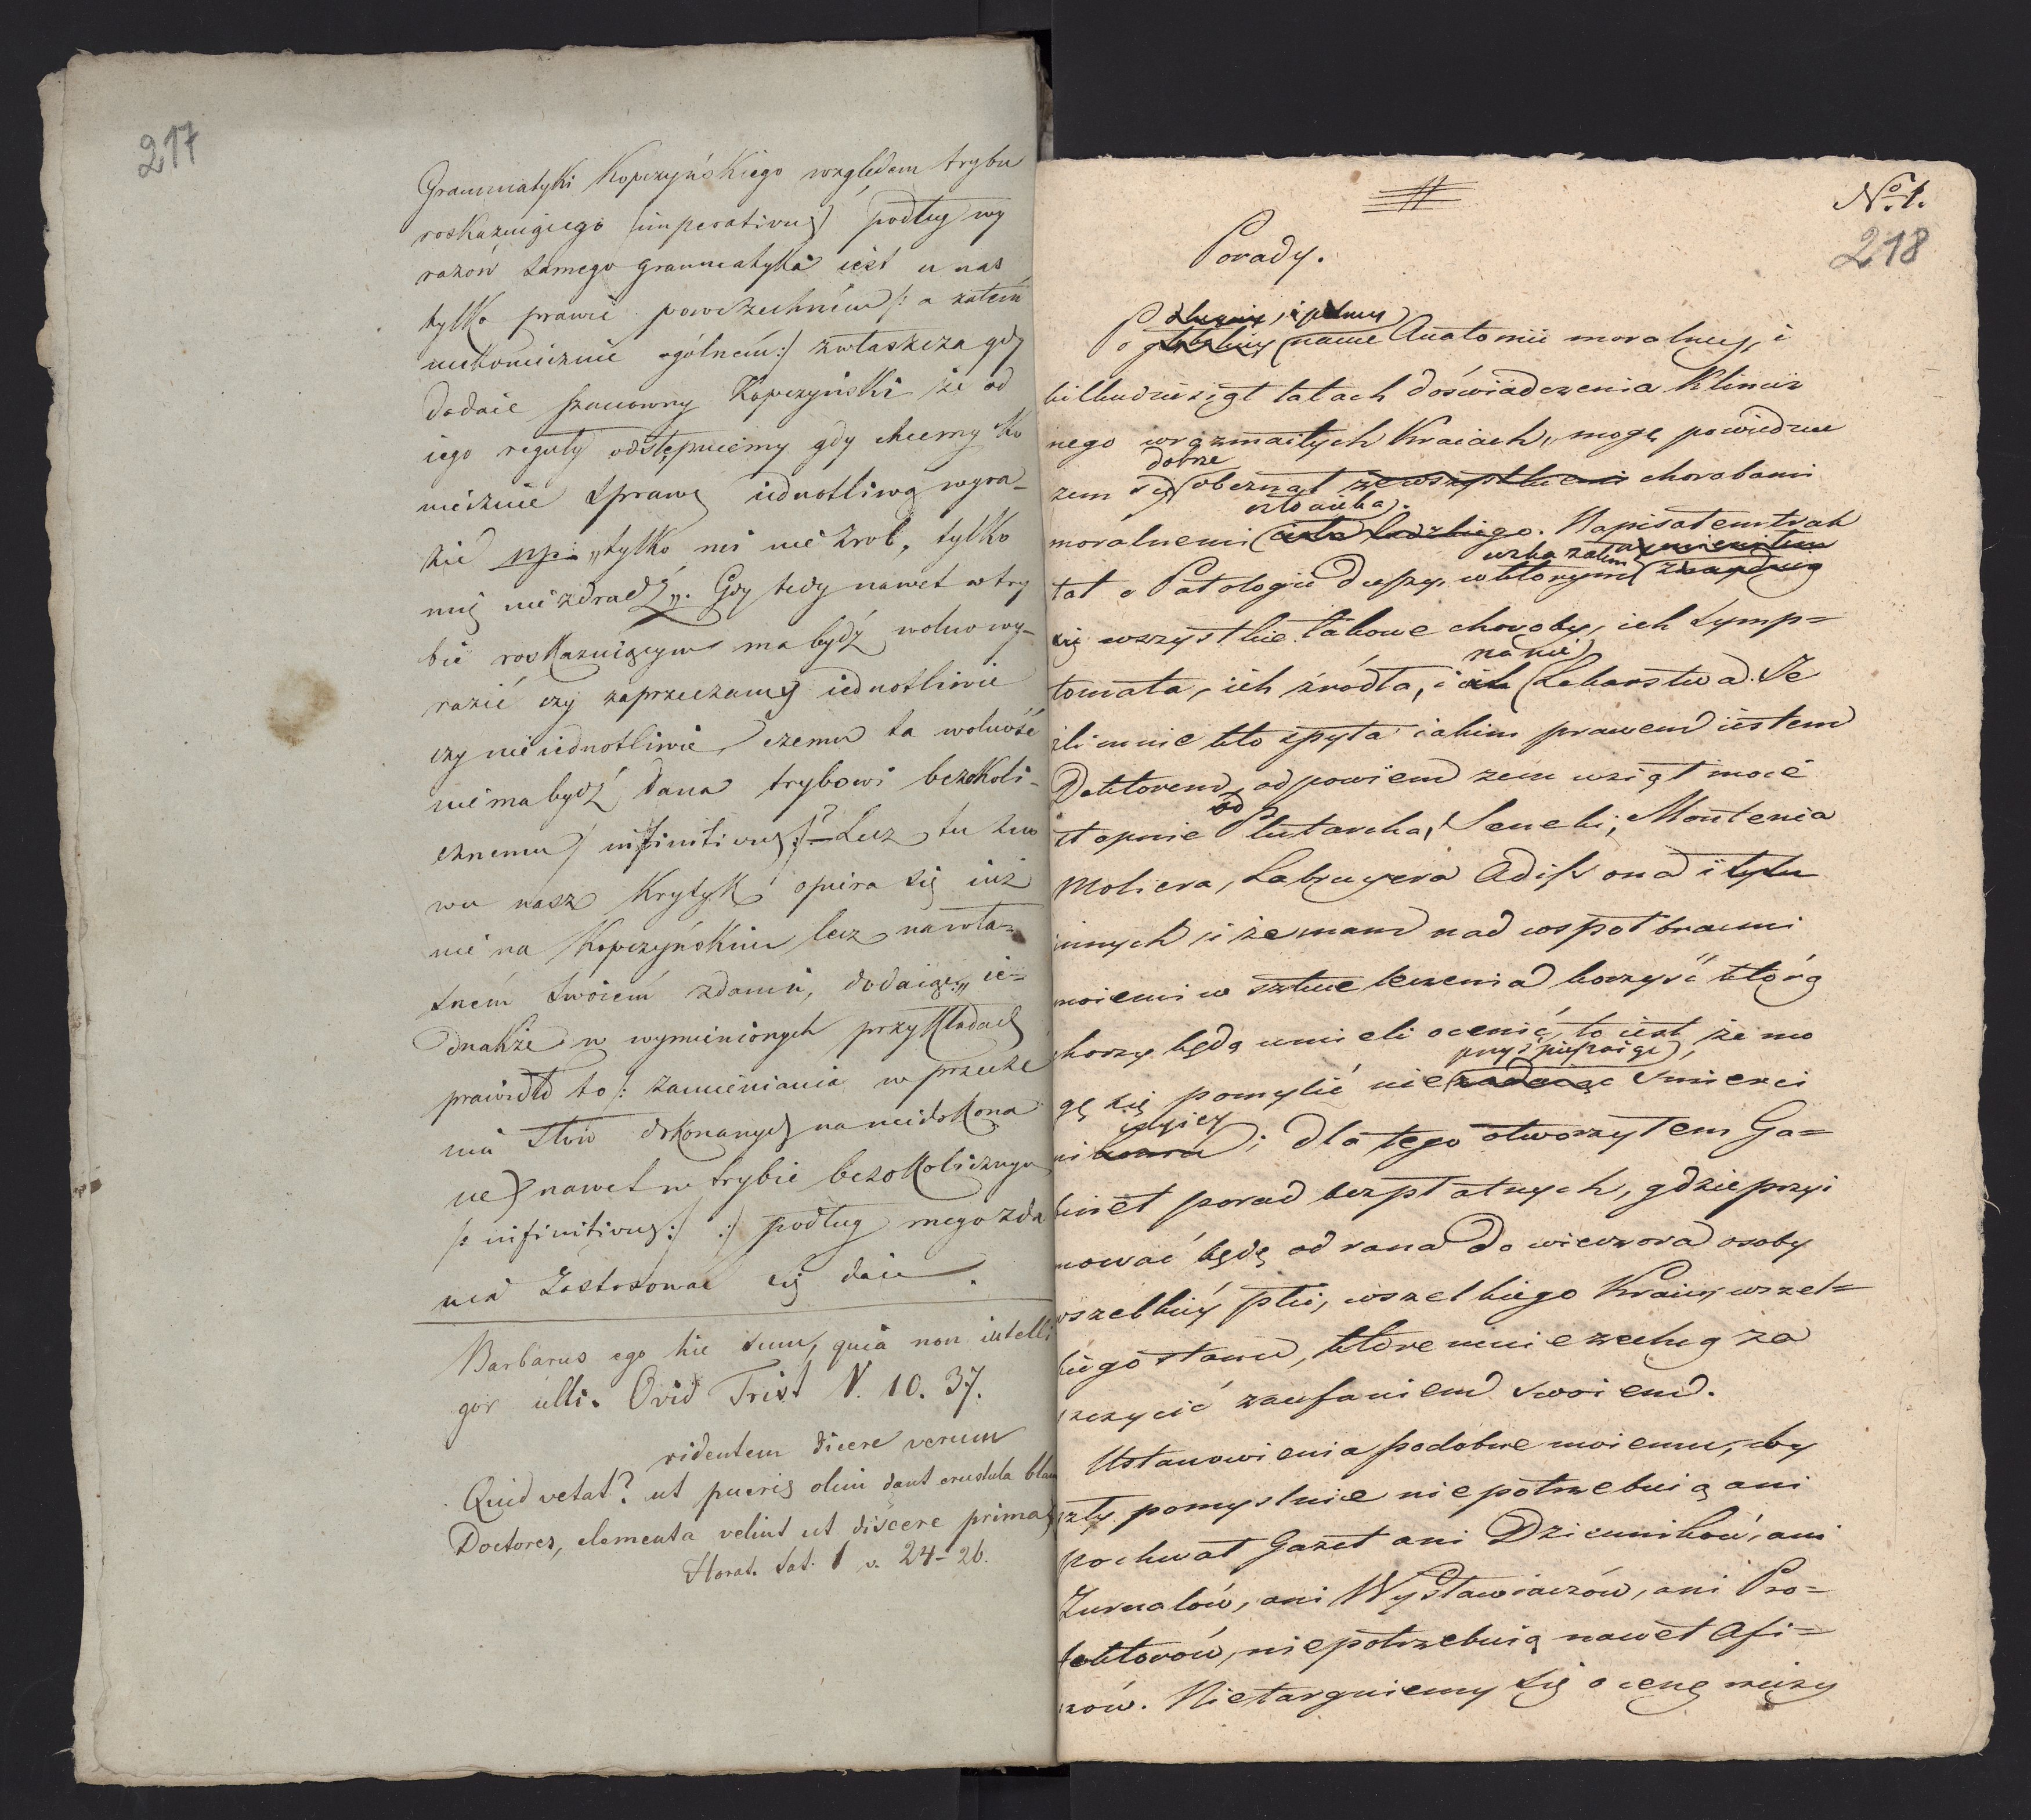 217
Grammatyki Kopczyńskiego względem trybu
roskazuiącego (imperativus) podług wy
razów samego grammatyka iest u nas
tylko prawie powszechném /: a zatém
niekoniecznie ogólném :/ zwłaszcza gdy
dodaie szanowny Kopczyński że od
iego reguły odstępuiemy gdy chcemy ko
niecznie sprawę iednotliwą wyra-
zić np: „tylko nic nie zrob, tylko
mię nie zdradź„. Gdy tedy nawet w try
bie roskazuiącym ma bydź wolno wy-
razić czy zaprzeczamy iednotliwie
czy nieiednotliwie, czemu ta wolność
niema bydź dana trybowi bezokoli-
cznemu / infinitivus /? Lecz tu zno
wu nasz Krytyk opiera się iuż
nie na Kopczyńskim lecz na wła-
sném swoiém zdaniu, dodaiąc: „ ie-
dnakże w wymienionych przykładach
prawidło to /: zamieniania w przecze
niu słów dokonanych na niedokona
ne) nawet w trybie bezokolicznym
/: infinitivus :/ :/ podług mego zda
nia zastosować się daie.
Barbarus ego hic sum, quia non intelli
gor ulli. Ovid Trist V. 10. 37.
ridentem dicere verum
Quid vetat? ut pueris olim dant crustula blan
Doctores, elementa velint ut discere prima
Horat. Sat. 1 v. 24-26.
No. 1.
218
Porady.
Po długiey, i pilney
głębokiey nauce Anatomii moralney, i
kilkudziesiąt latach doświadczenia Klinicz
nego w rozmaitych Kraiach, mogę powiedziec
dobrze
żem się obeznał ze wszystkiemi chorobami
człowieka.
moralnemi ciała ludzkiego. Napisałem trak
wskazałem
tat o Patologii duszy, w którym znayduią
się wszystkie takowe choroby, ich symp=
na nie
tomata, ich źródła, i ich Lekarstwa. Je
żli mnie kto spyta iakim prawem iestem
Doktorem, odpowiem żem wziął moie
od
stopnie Plutarcha, Seneki, Montenia
Moliera, Labruyera Adissona i tylu
innych i że mam nad wspołbracmi
moiemi w sztuce leczenia korzyść którą
chorzy będą umieli ocenić, to iest, że mo
przyspieszaiąc
gę się pomylić nie zadaiąc śmierci
niczyiey
; dla tego otworzyłem Ga=
binet porad bezpłatnych, gdzie przyi
mować będę od rana do wieczora osoby
wszelkiéy płci, wszelkiego Kraiu, wszel=
kiego stanu, które mnie zechcą za
szczycić zaufaniem swoiem.
Ustanowienia podobne moiemu, aby
szły pomyslnie niepotrzebuią ani
pochwał Gazet ani Dzienników, ani
Zurnalów, ani Wystawiaczów, ani Pro=
tektorów, niepotrzebuią nawet Afi=
szów. Nietarguiemy się o cenę mięzy